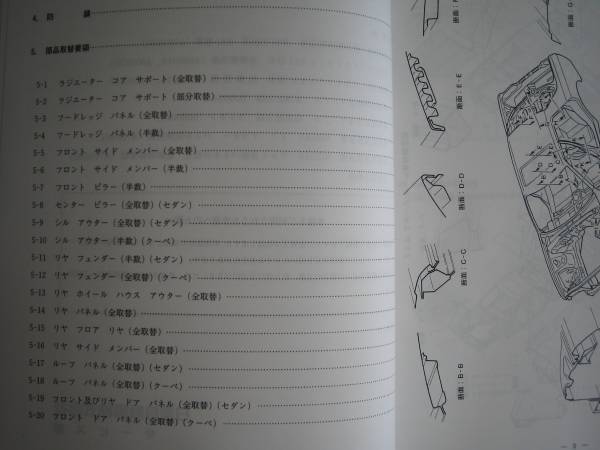 4. 防 錆
5. 部品取替要領
5-1 ラジエーター コア サポート(全取替)
5-2 ラジエーター コア サポート(部分取替)
5-3 フードレッジ パネル(全取替)
5-4 フードレッジ パネル(半裁)
5-5 フロント サイド メンバー(全取替)
5-6 フロント サイド メンバー(半裁)
5-7 フロント ピラー(半裁)
5-8 センター ピラー(全取替)(セダン)
5-9 シル アウター(全取替)(セダン)
5-10 シル アウター(半裁)(クーペ)
5-11 リヤ フェンダー(半裁)(セダン)
5-12 リヤ フェンダー(全取替)(クーペ)
5-13 リヤ ホイール ハウス アウター(全取替)
5-14 リヤ パネル(全取替)
5-15 リヤ フロア リヤ(全取替)
5-16 リヤ サイド メンバー(全取替)
5-17 ルーフ パネル(全取替)(セダン)
5-18 ルーフ パネル(全取替)(クーペ)
5-19 フロント及びリヤ ドア パネル(全取替)(セダン)
5-20 フロント ドア パネル(全取替)(クーペ)
断面:E-E
断面:D-D
断面:C-C
断面:B-B